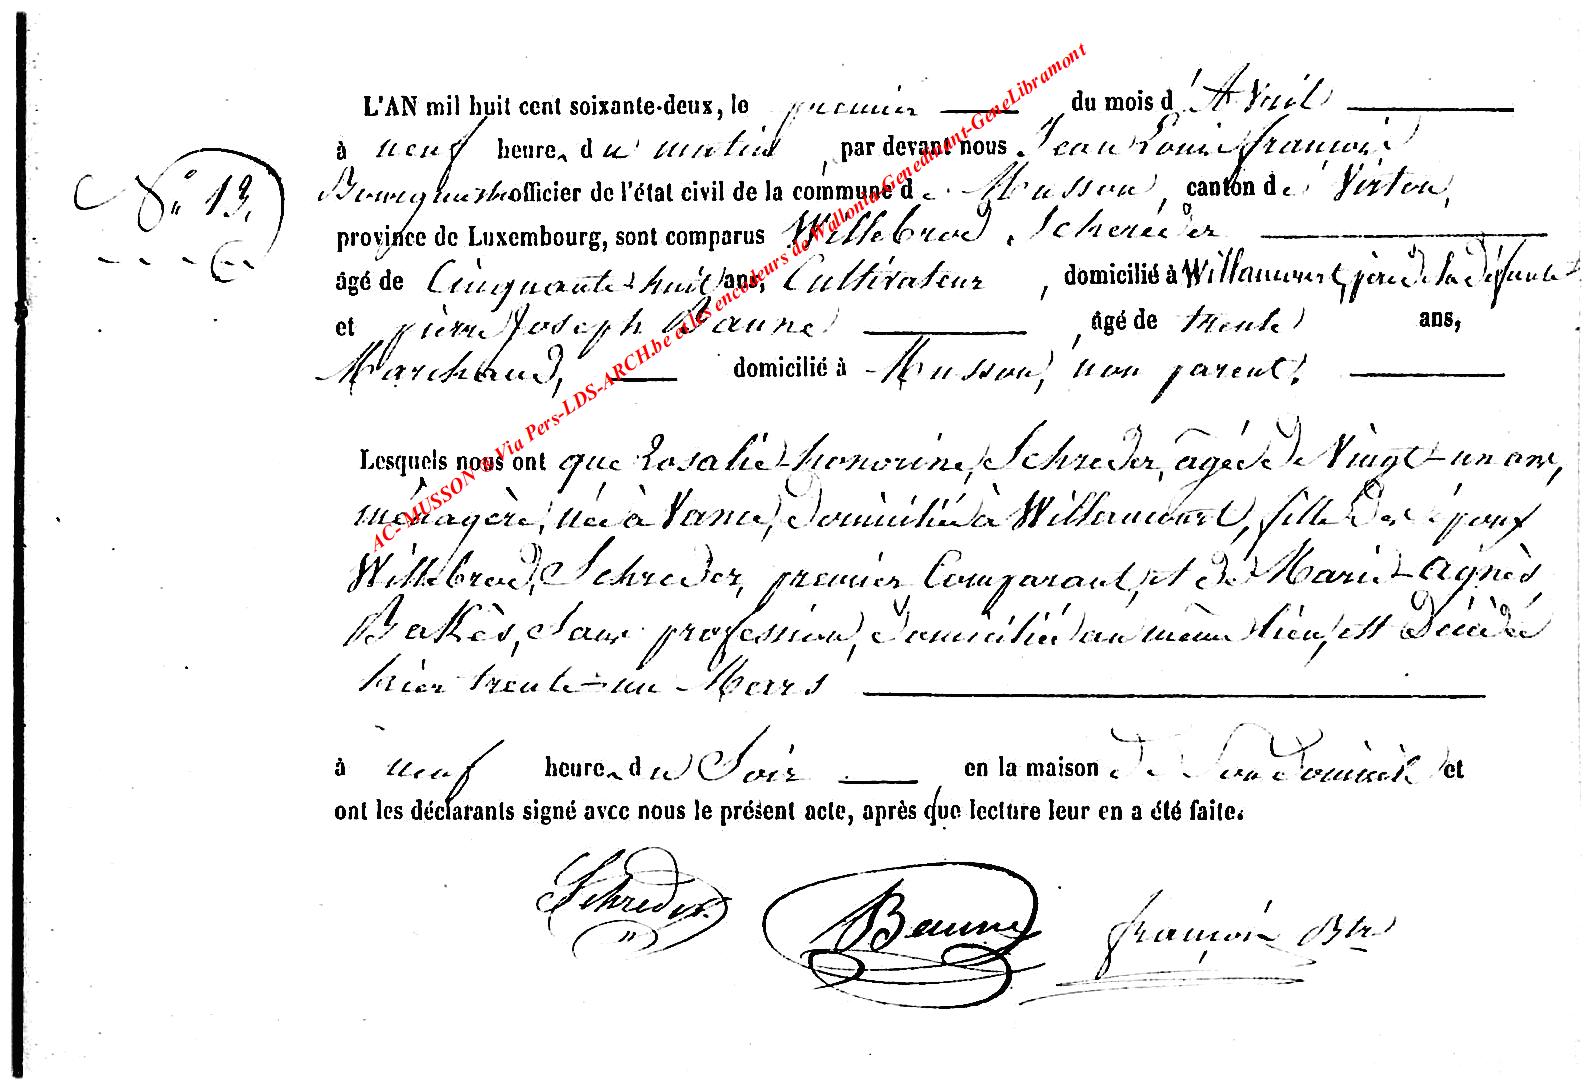 L'AN mil huit cent soixante-deux, le premier du mois d'Avril
à neuf heures du matin, par devant nous Jean Louis françois
N° 13. Bourgmestre officier de l'état civil de la commune de Musson, canton de Virton,
province de Luxembourg, sont comparus Willebrod Schereder
âgé de Cinquante-huit ans, Cultivateur, domicilié à Willancourt, père de la défunte
et pierre Joseph Baune, âgé de trente ans,
Marchand, domicilié à Musson, non parent,
Lesquels nous ont que Rosalie-honorine, Schreder, agée de Vingt-un ans,
ménagère, née à Vance, domiciliée à Willancourt, fille des époux
Willebrod, Schreder, premier Comparant, et de Marie-Agnès
Bakès, sans profession, domiciliés au même lieu, est décédée
hier trente-un Mars
à neuf heures du Soir en la maison de son domicile et
ont les déclarants signé avec nous le présent acte, après que lecture leur en a été faite.
Schreder Baune françois Btre
AC- MUSSON Via Pers-LDS-ARCH.be et les encodeurs de Wallonia-Genedinant-GeneLibramont